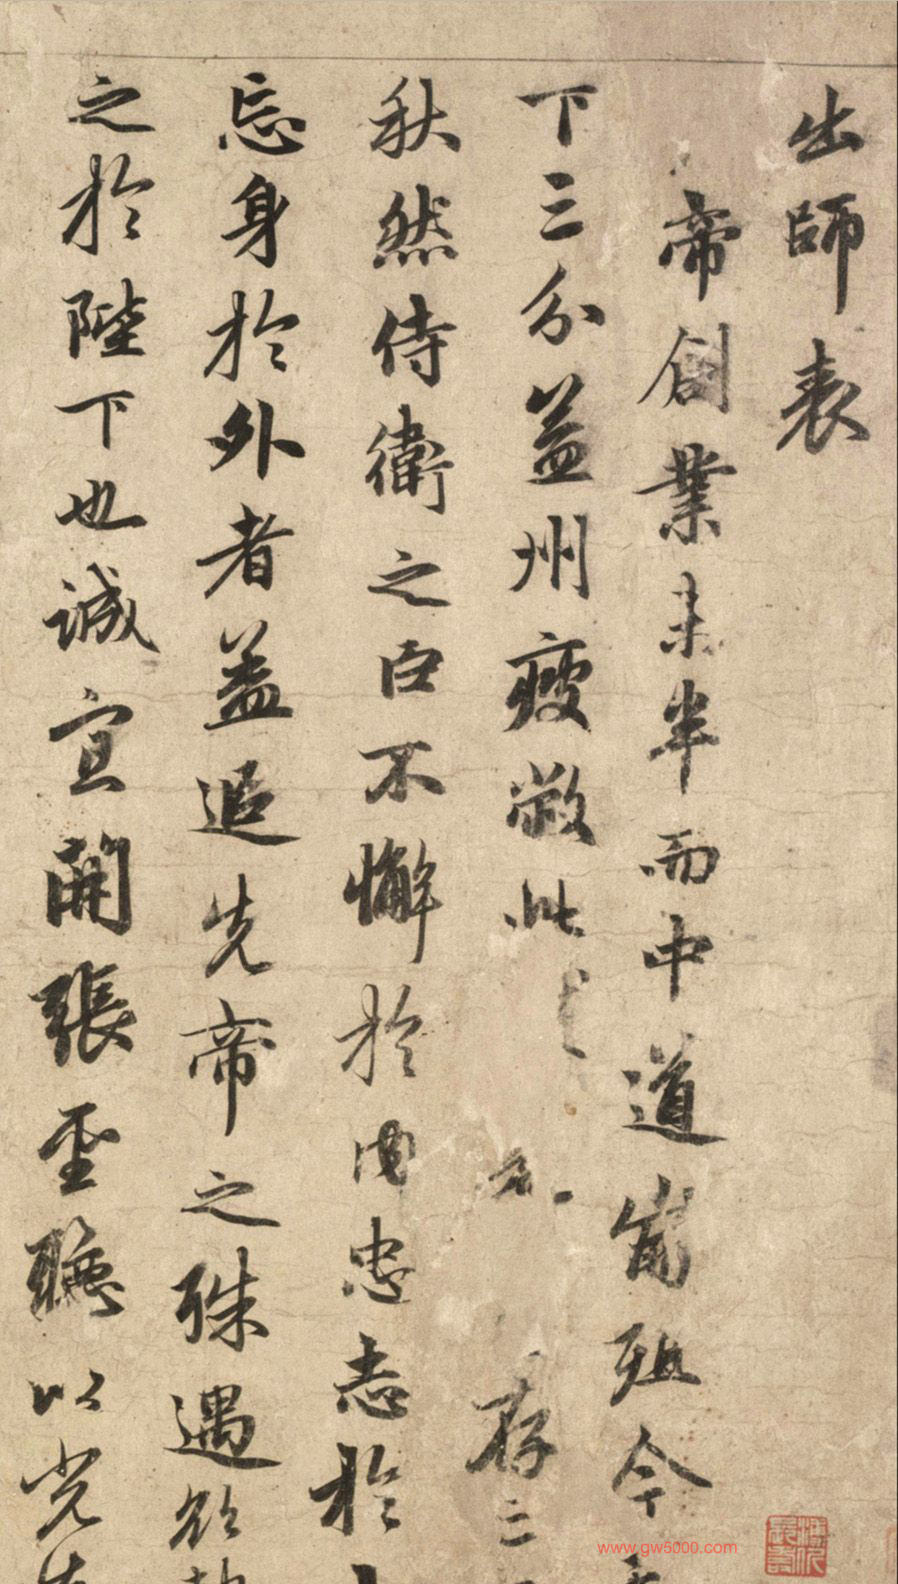 出師表
帝創業未半而中道崩殂今
下三分益州疲敝此
存
秋然侍衛之臣不懈於内忠志於
忘身於外者蓋追先帝之殊遇欲
之於陛下也誠宜開張聖聽以光
www.gw5000.com